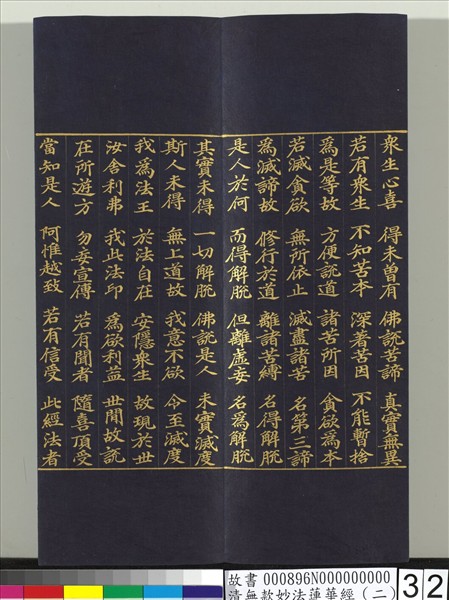 衆生心喜 得未曽有 佛說苦諦 真實無異
若有衆生 不知苦本 深着苦因 不能暫捨
為是等故 方便說道 諸苦所因 貪欲為本
若滅貪欲 無所依止 滅盡諸苦 名第三諦
為滅諦故 修行於道 離諸苦縛 名得解脫
是人於何 而得解脫 但離虛妄 名為解脫
其實未得 一切解脫 佛說是人 未實滅度
斯人未得 無上道故 我意不欲 令至滅度
我為法王 於法自在 安隱衆生 故現於世
汝舍利弗 我此法印 為欲利益 世間故說
在所遊方 勿妄宣傳 若有聞者 隨喜頂受
當知是人 阿惟越致 若有信受 此經法者
故書 000896N000000000
清無款妙法蓮華經(二)
32